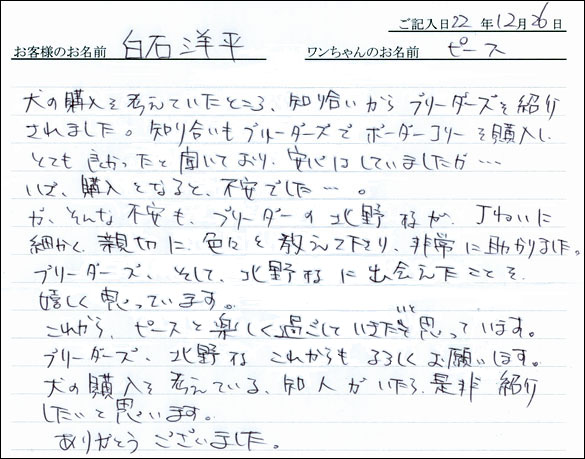 ご記入日22年12月26日
お客様のお名前 白石洋平 ワンちゃんのお名前 ピース
犬の購入を考えていたところ、知り合いからブリーダーズを紹介
されました。知り合いもブリーダーズでボーダーコリーを購入し、
とても良かったと聞いており、安心はしていましたが…
いざ、購入となると、不安でした…。
が、そんな不安も、ブリーダーの北野様が、丁ねいに
細かく、親切に、色々と教えて下さり、非常に助かりました。
ブリーダーズ、そして、北野様に出会えたことを
嬉しく思っています。
これから、ピースと楽しく過ごしていきたいと思っています。
ブリーダーズ、北野様 これからもよろしくお願いします。
犬の購入を考えている、知人がいたら、是非紹介
したいと思います。
ありがとうございました。